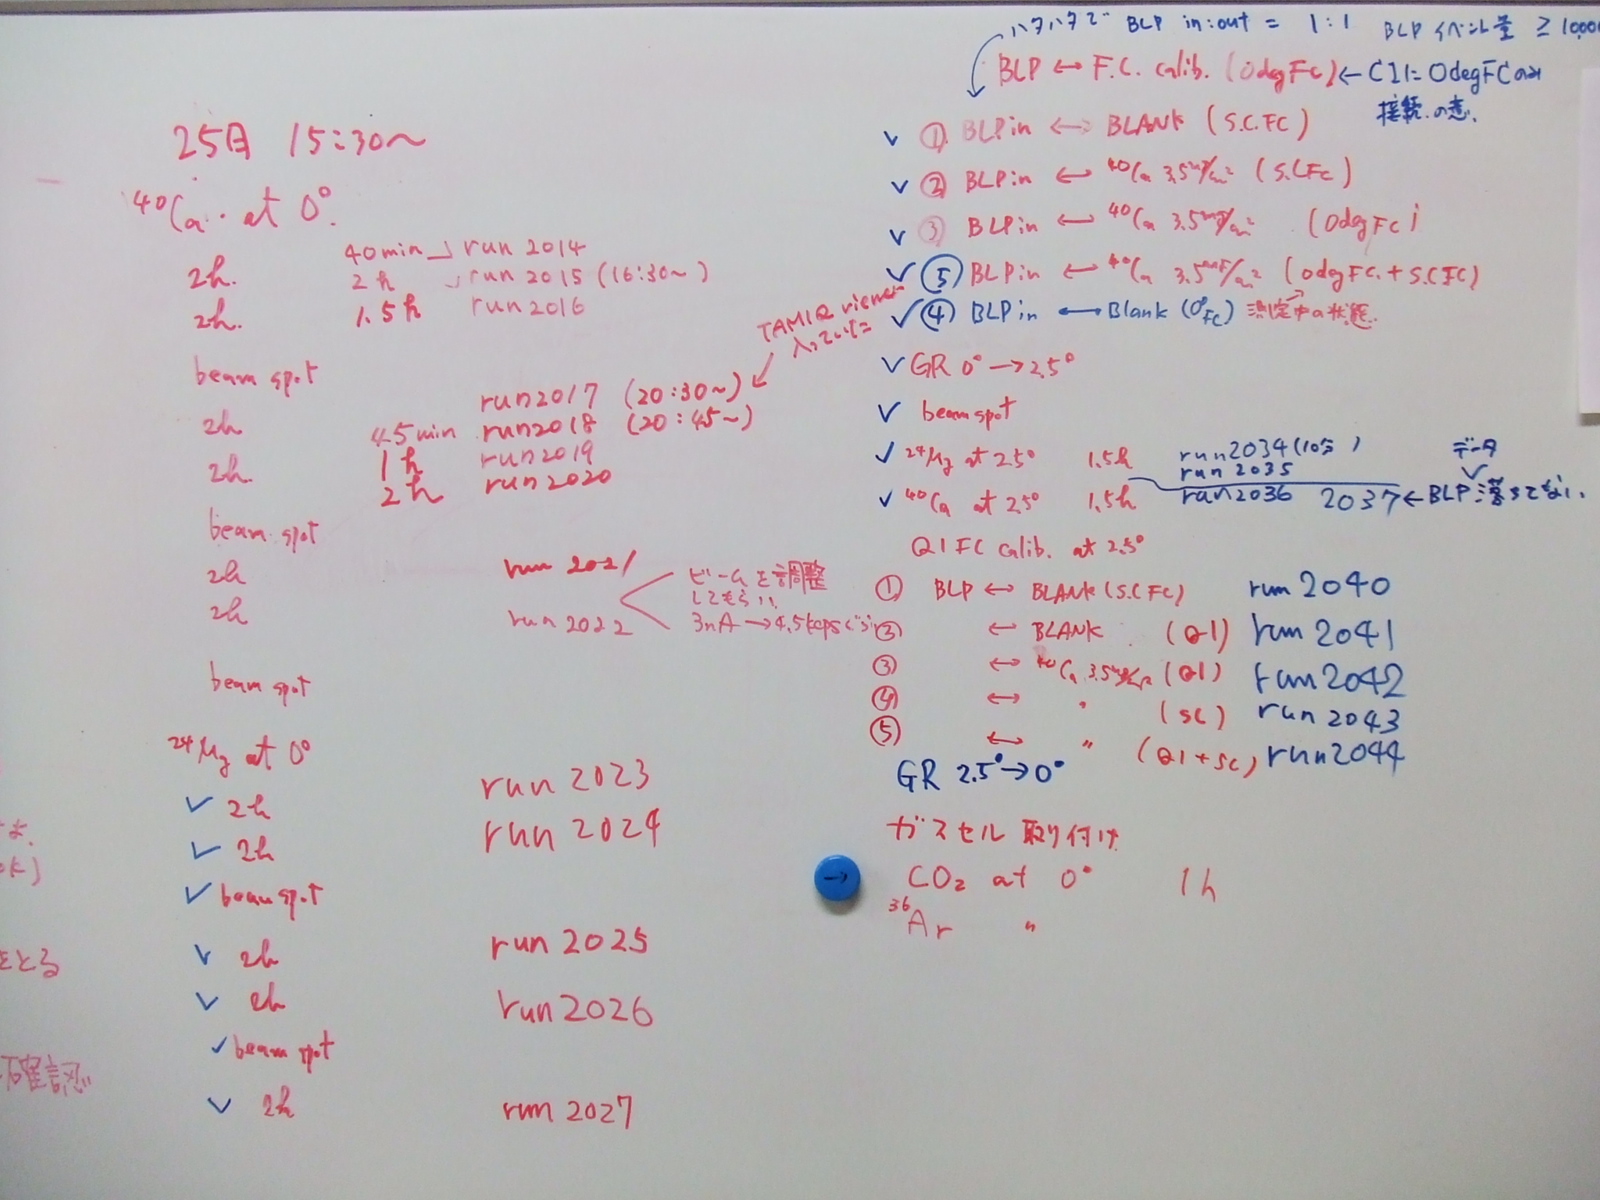 25日 15:30〜
40Ca at 0°
2h. 40min run 2014
2h run 2015 (16:30〜)
2h. 1.5h run2016
beam spot
run2017 (20:30〜)
2h 45min run2018 (20:45〜)
1h run2019
2h. 2h run2020
beam spot
2h run 2021
2h run 2022
ビームを調整
してもらい
3nA → 4.5kcps
beam spot
24Mg at 0°
✓ 2h run 2023
✓ 2h run 2024
✓ beam spot
✓ 2h run 2025
✓ 2h run 2026
✓ beam spot
✓ 2h run 2027
をとる
確認
TAMIQ viewer
入っていた
ハタハタで BLP in:out = 1:1 BLP イベント量 ≥ 10,000
BLP ↔ F.C. calib. (0degFC) ← C21に 0degFCのみ
接続の意.
✓ ① BLPin ↔ BLANK (S.C.FC)
✓ ② BLPin ↔ 40Ca 3.5mg/cm² (S.C.FC)
✓ ③ BLPin ↔ 40Ca 3.5mg/cm² (0degFC)
✓ ⑤ BLPin ↔ 40Ca 3.5mg/cm² (0degFC.+S.C.FC)
✓ ④ BLPin ↔ Blank (0°FC) 測定中の状態.
✓ GR 0° → 2.5°
✓ beam spot
✓ 24Mg at 2.5° 1.5h run2034 (10分)
run 2035
✓ 40Ca at 2.5° 1.5h run2036 2037 ← BLP落ちてない.
データ
Q1FC calib. at 2.5°
① BLP ↔ BLANK (S.C.FC) run 2040
② ↔ BLANK (Q1) run 2041
③ ↔ 40Ca 3.5mg/cm² (Q1) run 2042
④ ↔ 〃 (SC) run 2043
⑤ ↔ 〃 (Q1+SC) run2044
GR 2.5° → 0°
ガスセル 取り付け
→ CO2 at 0° 1h
36Ar 〃